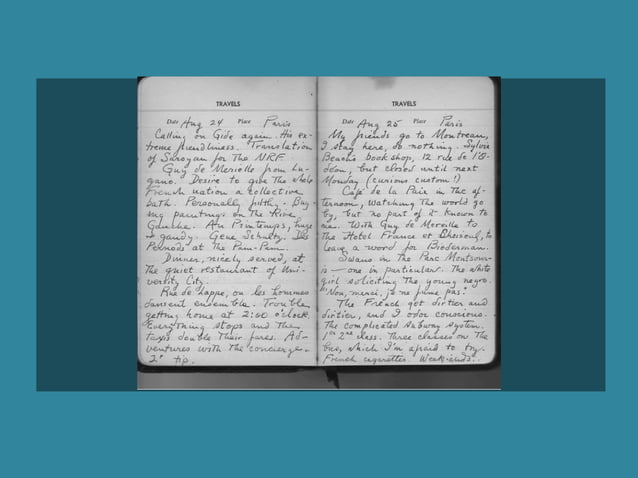 TRAVELS
Date Aug 24 Place Paris
Calling on Gide again. His ex-
treme friendliness. Translation
of Saroyan for the NRF
Guy de Merville from Lu-
gano. Desire to give the whole
French nation a collective
bath. Personally filthy. - Buy-
ing paintings on the Rive
Gauche. Au Printemps, huge
+ gaudy. Gene Schultz. Des
Pernods at the Pam-Pam.
Dinner, nicely served, at
the quiet restaurant of Uni-
versity City.
Rue de Lappe, ou les hommes
dansent ensemble. Trouble
getting home at 2:00 o'clock.
Everything stops and the
taxis double their fares. Ad-
ventures with the concierge.
2° tip.
TRAVELS
Date Aug 25 Place Paris
My friends go to Montreau,
I stay here, do nothing. Sylvia
Beach's book shop, 12 rue de l'O-
déon, but closed until next
Monday (curious custom!)
Café de la Paix in the af-
ternoon, watching the world go
by, but no part of it known to
me. With Guy de Merville to
the Hotel France et Choiseul, to
leave a word for Biederman.
Swans in the Parc Montsou-
ris — one in particular. The white
girl soliciting the young negro.
"Non, merci, je ne fume pas."
The French get dirtier and
dirtier, and I odor conscious.
The complicated subway system.
2nd class. Three classes on the
bus, which I'm afraid to try.
French cigarettes. Week-ends.